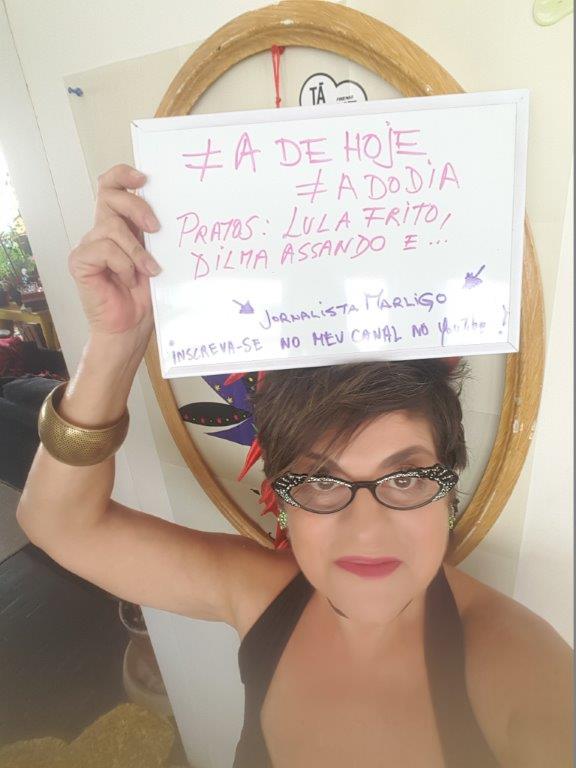 ≠ A DE HOJE
≠ A DO DIA
PRATOS: LULA FRITO,
DILMA ASSANDO E ...
JORNALISTA MARLIGO
INSCREVA-SE NO MEU CANAL NO YouTube!
TÁ